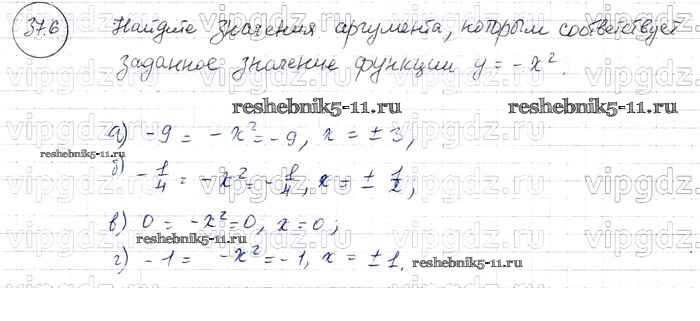 37.6 Найдите значения аргумента, которым соответствует
заданное значение функции y = -x².
reshebnik5-11.ru reshebnik5-11.ru
а) -9 = -x² = -9, x = ± 3,
reshebnik5-11.ru
б) -1/4 = -x² = -1/4, x = ± 1/2,
в) 0 = -x² = 0, x = 0;
reshebnik5-11.ru
г) -1 = -x² = -1, x = ± 1.
reshebnik5-11.ru